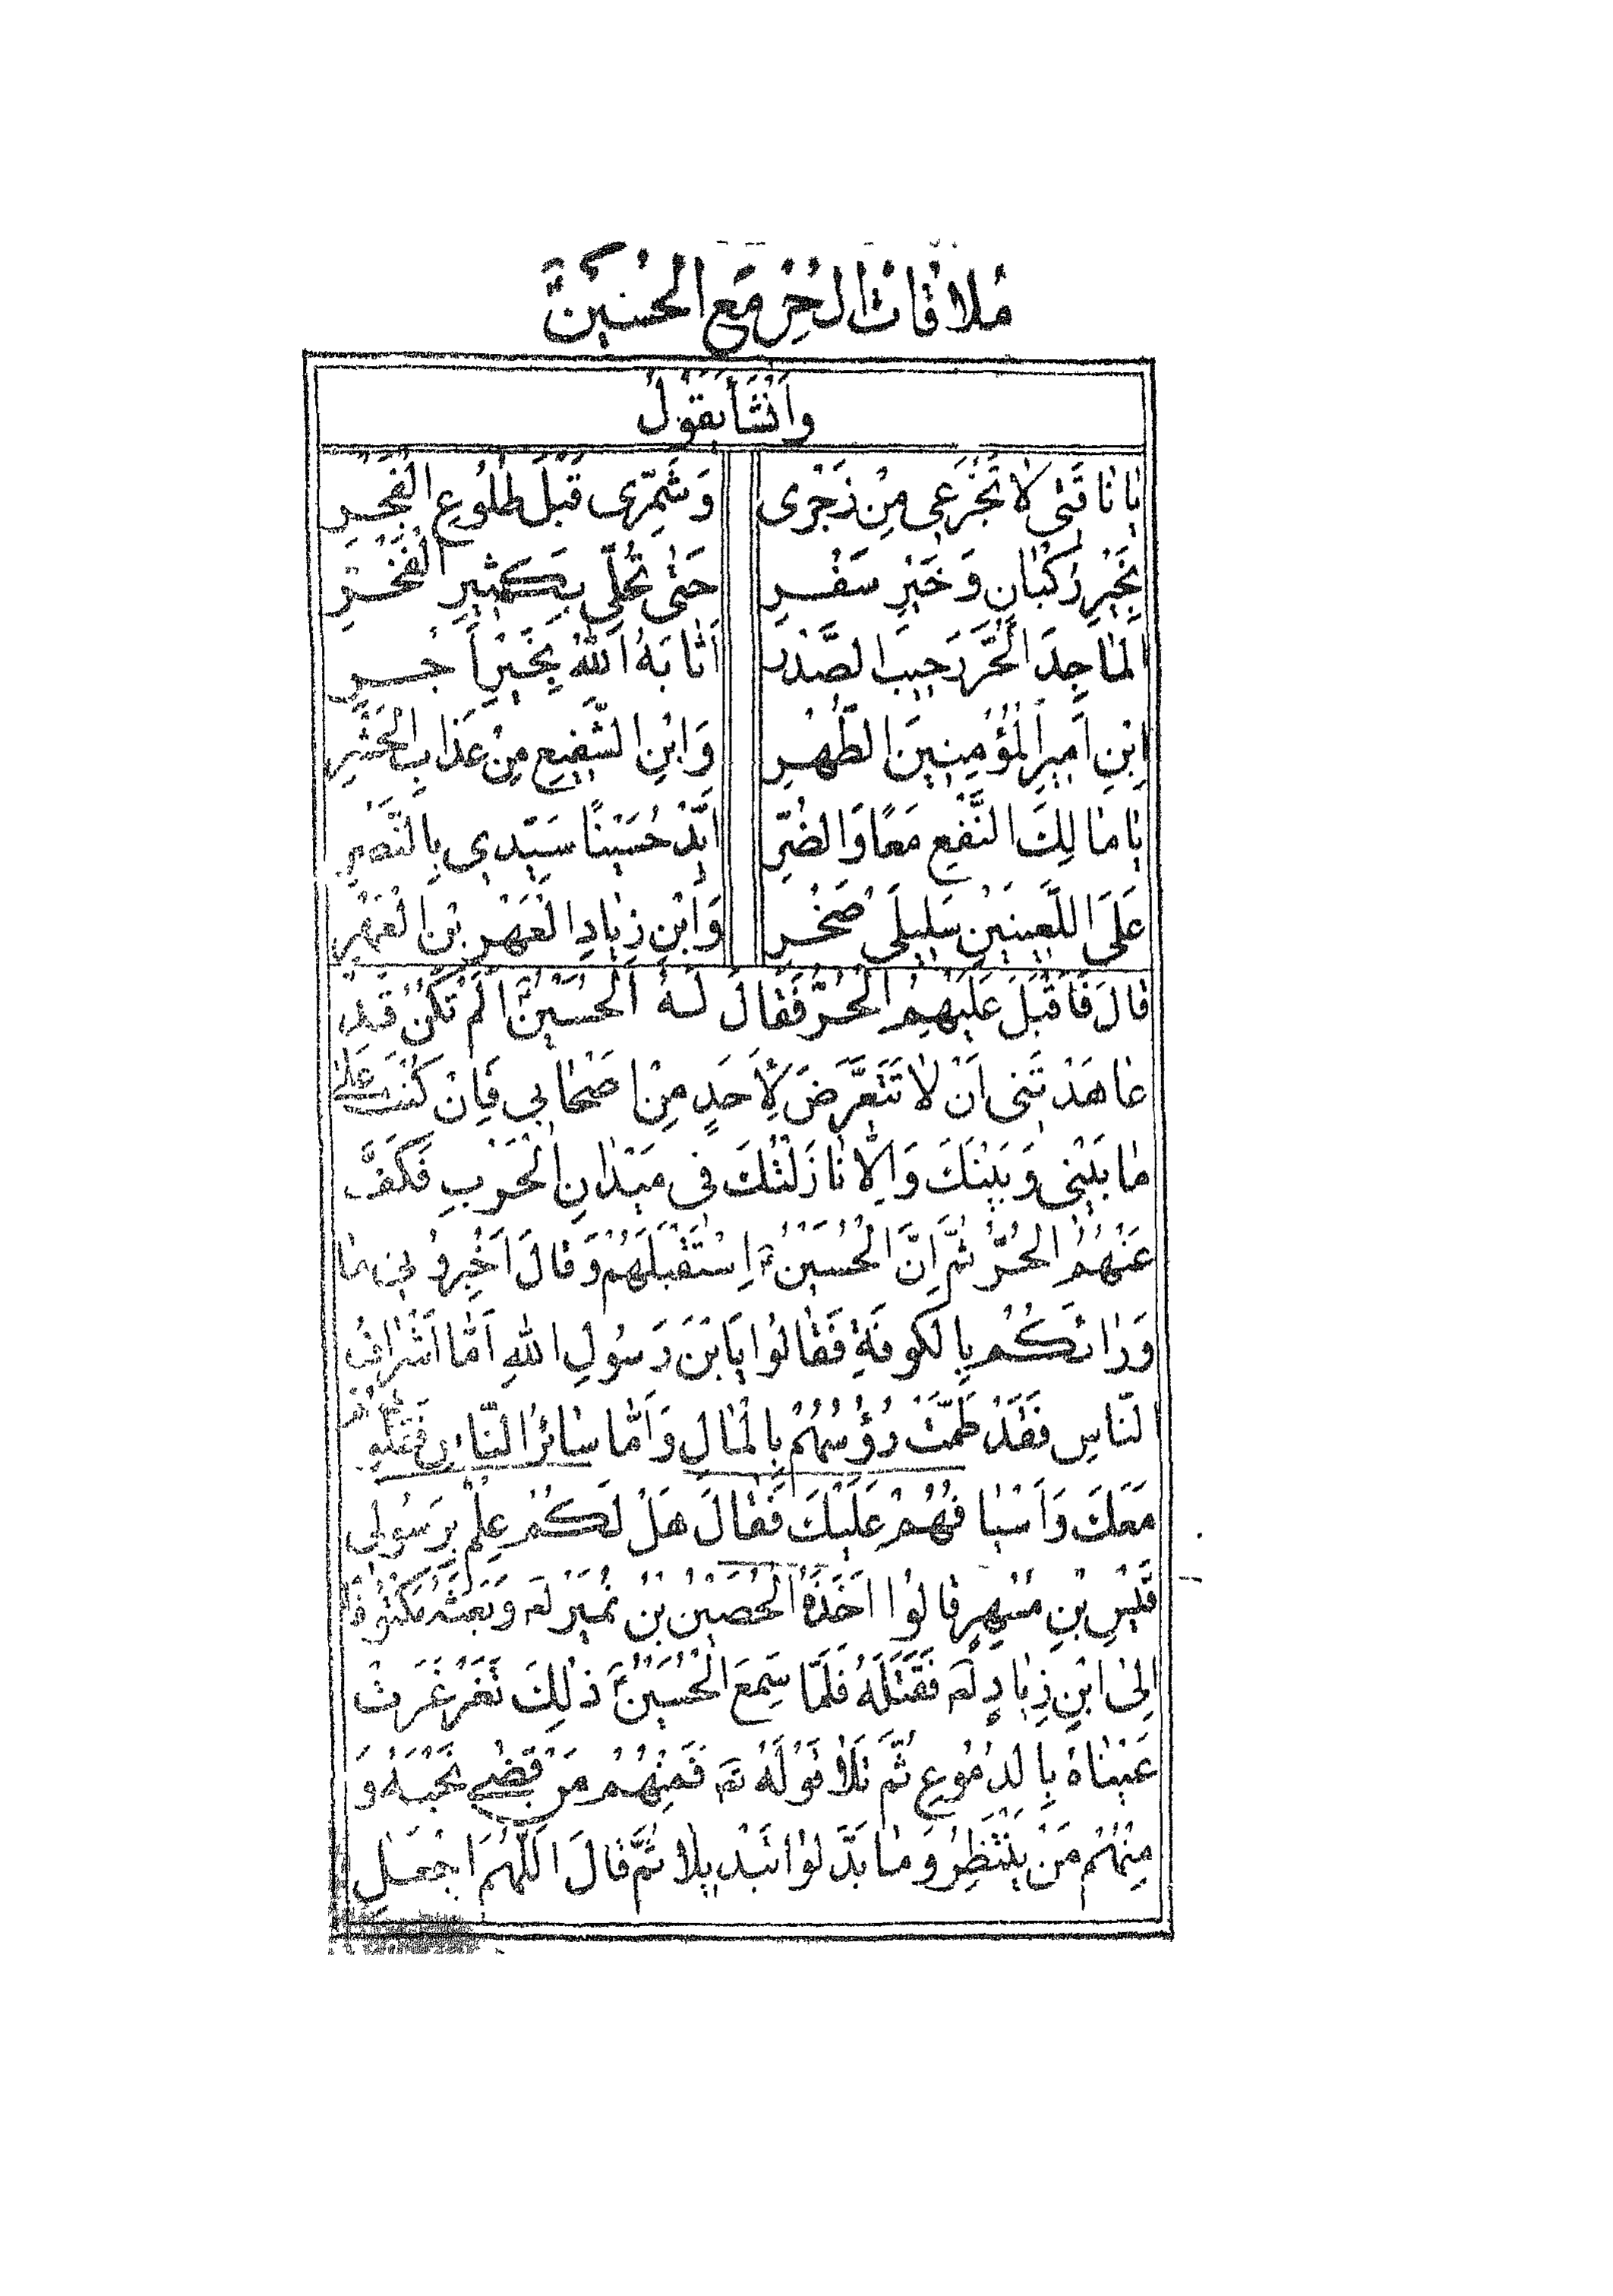 مُلاقاتُ الحُرِّ مَعَ الحُسَيْنِ ع
وَاَنْشَأَ يَقُولُ
يٰا نٰاقَتٖى لٰا تَجْزَعٖى مِنْ زَجْرٖى وَشَمِّرٖى قَبْلَ طُلُوعِ الْفَجْرِ
بِخَيْرِ رُكْبٰانٍ وَخَيْرِ سَفْرِ حَتّٰى تَحُلّٖى بِكَثٖيرِ الْفَخْرِ
الْمٰاجِدَ الْحُرَّ رَحٖيبَ الصَّدْرِ اَثٰابَهُ اللّٰهُ بِخَيْرِ اَجْرِ
اِبْنِ اَمٖيرِ الْمُؤْمِنٖينَ الطُّهْرِ وَابْنِ الشَّفٖيعِ مِنْ عَذٰابِ الْحَشْرِ
يٰا مٰالِكَ النَّفْعِ مَعًا وَالضُّرِّ اَيِّدْ حُسَيْنًا سَيِّدٖى بِالنَّصْرِ
عَلَى اللَّعٖينَيْنِ سَلٖيلَىْ صَخْرِ وَابْنِ زِيٰادِ الْعَهْرِ بْنِ الْعَهْرِ
قٰالَ فَاَقْبَلَ عَلَيْهِمُ الْحُرُّ فَقٰالَ لَهُ الْحُسَيْنُ ع اَلَمْ تَكُنْ قَدْ
عٰاهَدْتَنٖى اَنْ لٰا تَتَعَرَّضَ لِاَحَدٍ مِنْ اَصْحٰابٖى فَاِنْ كُنْتَ عَلٰى
مٰا بَيْنٖى وَبَيْنَكَ وَاِلّٰا نٰازَلْتُكَ فٖى مَيْدٰانِ الْحَرْبِ فَكَفَّ
عَنْهُمُ الْحُرُّ ثُمَّ اِنَّ الْحُسَيْنَ ع اِسْتَقْبَلَهُمْ وَقٰالَ اَخْبِرُونٖى بِمٰا
وَرٰائَكُمْ بِالْكُوفَةِ فَقٰالُوا يَابْنَ رَسُولِ اللّٰهِ اَمّٰا اَشْرٰافُ
النّٰاسِ فَقَدْ طُمَّتْ رُؤُسُهُمْ بِالْمٰالِ وَاَمّٰا سٰائِرُ النّٰاسِ فَقُلُوبُهُمْ
مَعَكَ وَاَسْيٰافُهُمْ عَلَيْكَ فَقٰالَ هَلْ لَكُمْ عِلْمٌ بِرَسُولٖى
قَيْسِ بْنِ مُسْهِرٍ قٰالُوا اَخَذَهُ الْحُصَيْنُ بْنُ نُمَيْرٍ لع وَبَعَثَهُ مَكْتُوفًا
اِلٰى ابْنِ زِيٰادٍ لع فَقَتَلَهُ فَلَمّٰا سَمِعَ الْحُسَيْنُ ع ذٰلِكَ تَغَرْغَرَتْ
عَيْنٰاهُ بِالدُّمُوعِ ثُمَّ تَلٰا قَوْلَهُ تع فَمِنْهُمْ مَنْ قَضٰى نَحْبَهُ وَ
مِنْهُمْ مَنْ يَنْتَظِرُ وَمٰا بَدَّلُوا تَبْدٖيلًا ثُمَّ قٰالَ اَللّٰهُمَّ اجْعَلْ